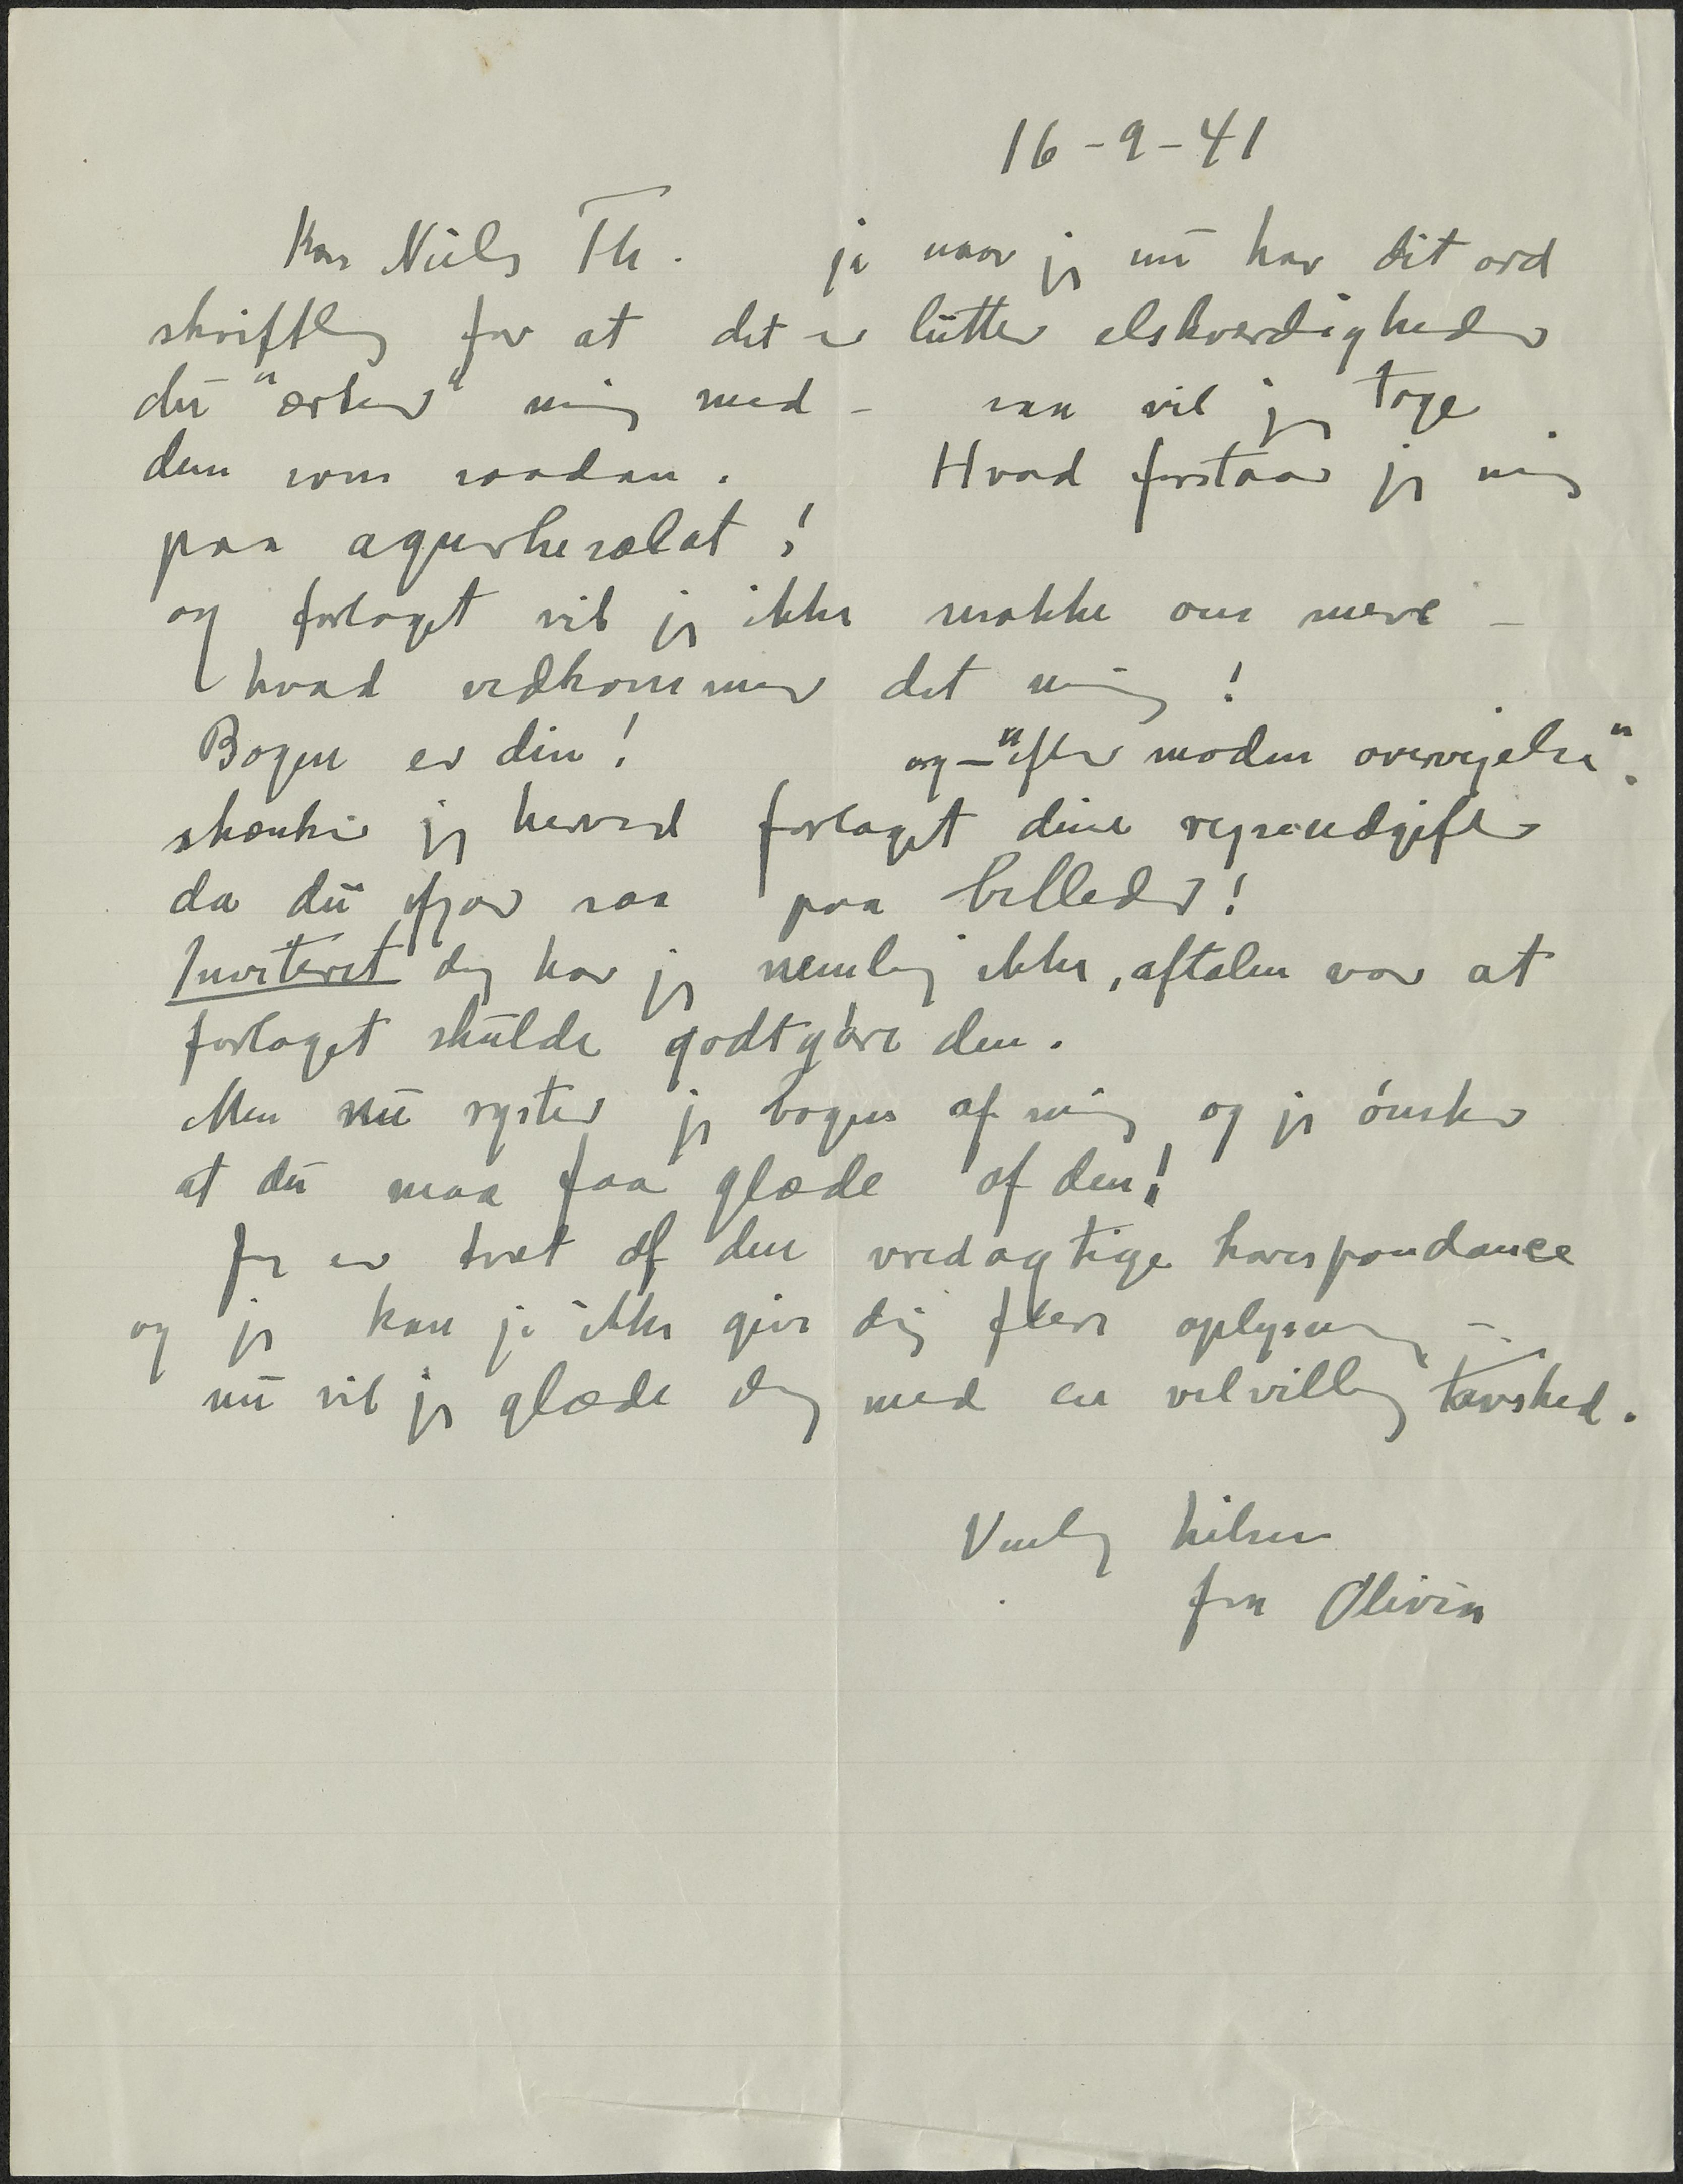 16-9-41
Kære Niels Th. ja naar jeg nu har dit ord
skriftlig for at det er lutter elskværdigheder
du "ærter" mig med - saa vil jeg tage
dem som saadan. Hvad forstaar jeg mig
paa agurkesalat!
og forlaget vil jeg ikke snakke om mere -
hvad vedkommer det mig!
Bogen er din! og - "efter moden overvejelse".
skænker jeg herved forlaget dine rejseudgifter
da du ifjor saa paa billeder!
Inviteret dig har jeg nemlig ikke, aftalen var at
forlaget skulde godtgøre den.
Men nu ryster jeg bogen af mig og jeg ønsker
at du maa faa glæde af den!
Jeg er træt af den vredagtige korrespondance
og jeg kan jo ikke give dig flere oplysning -
nu vil jeg glæde dig med en velvillig tavshed.
Venlig hilsen
fra Olivia